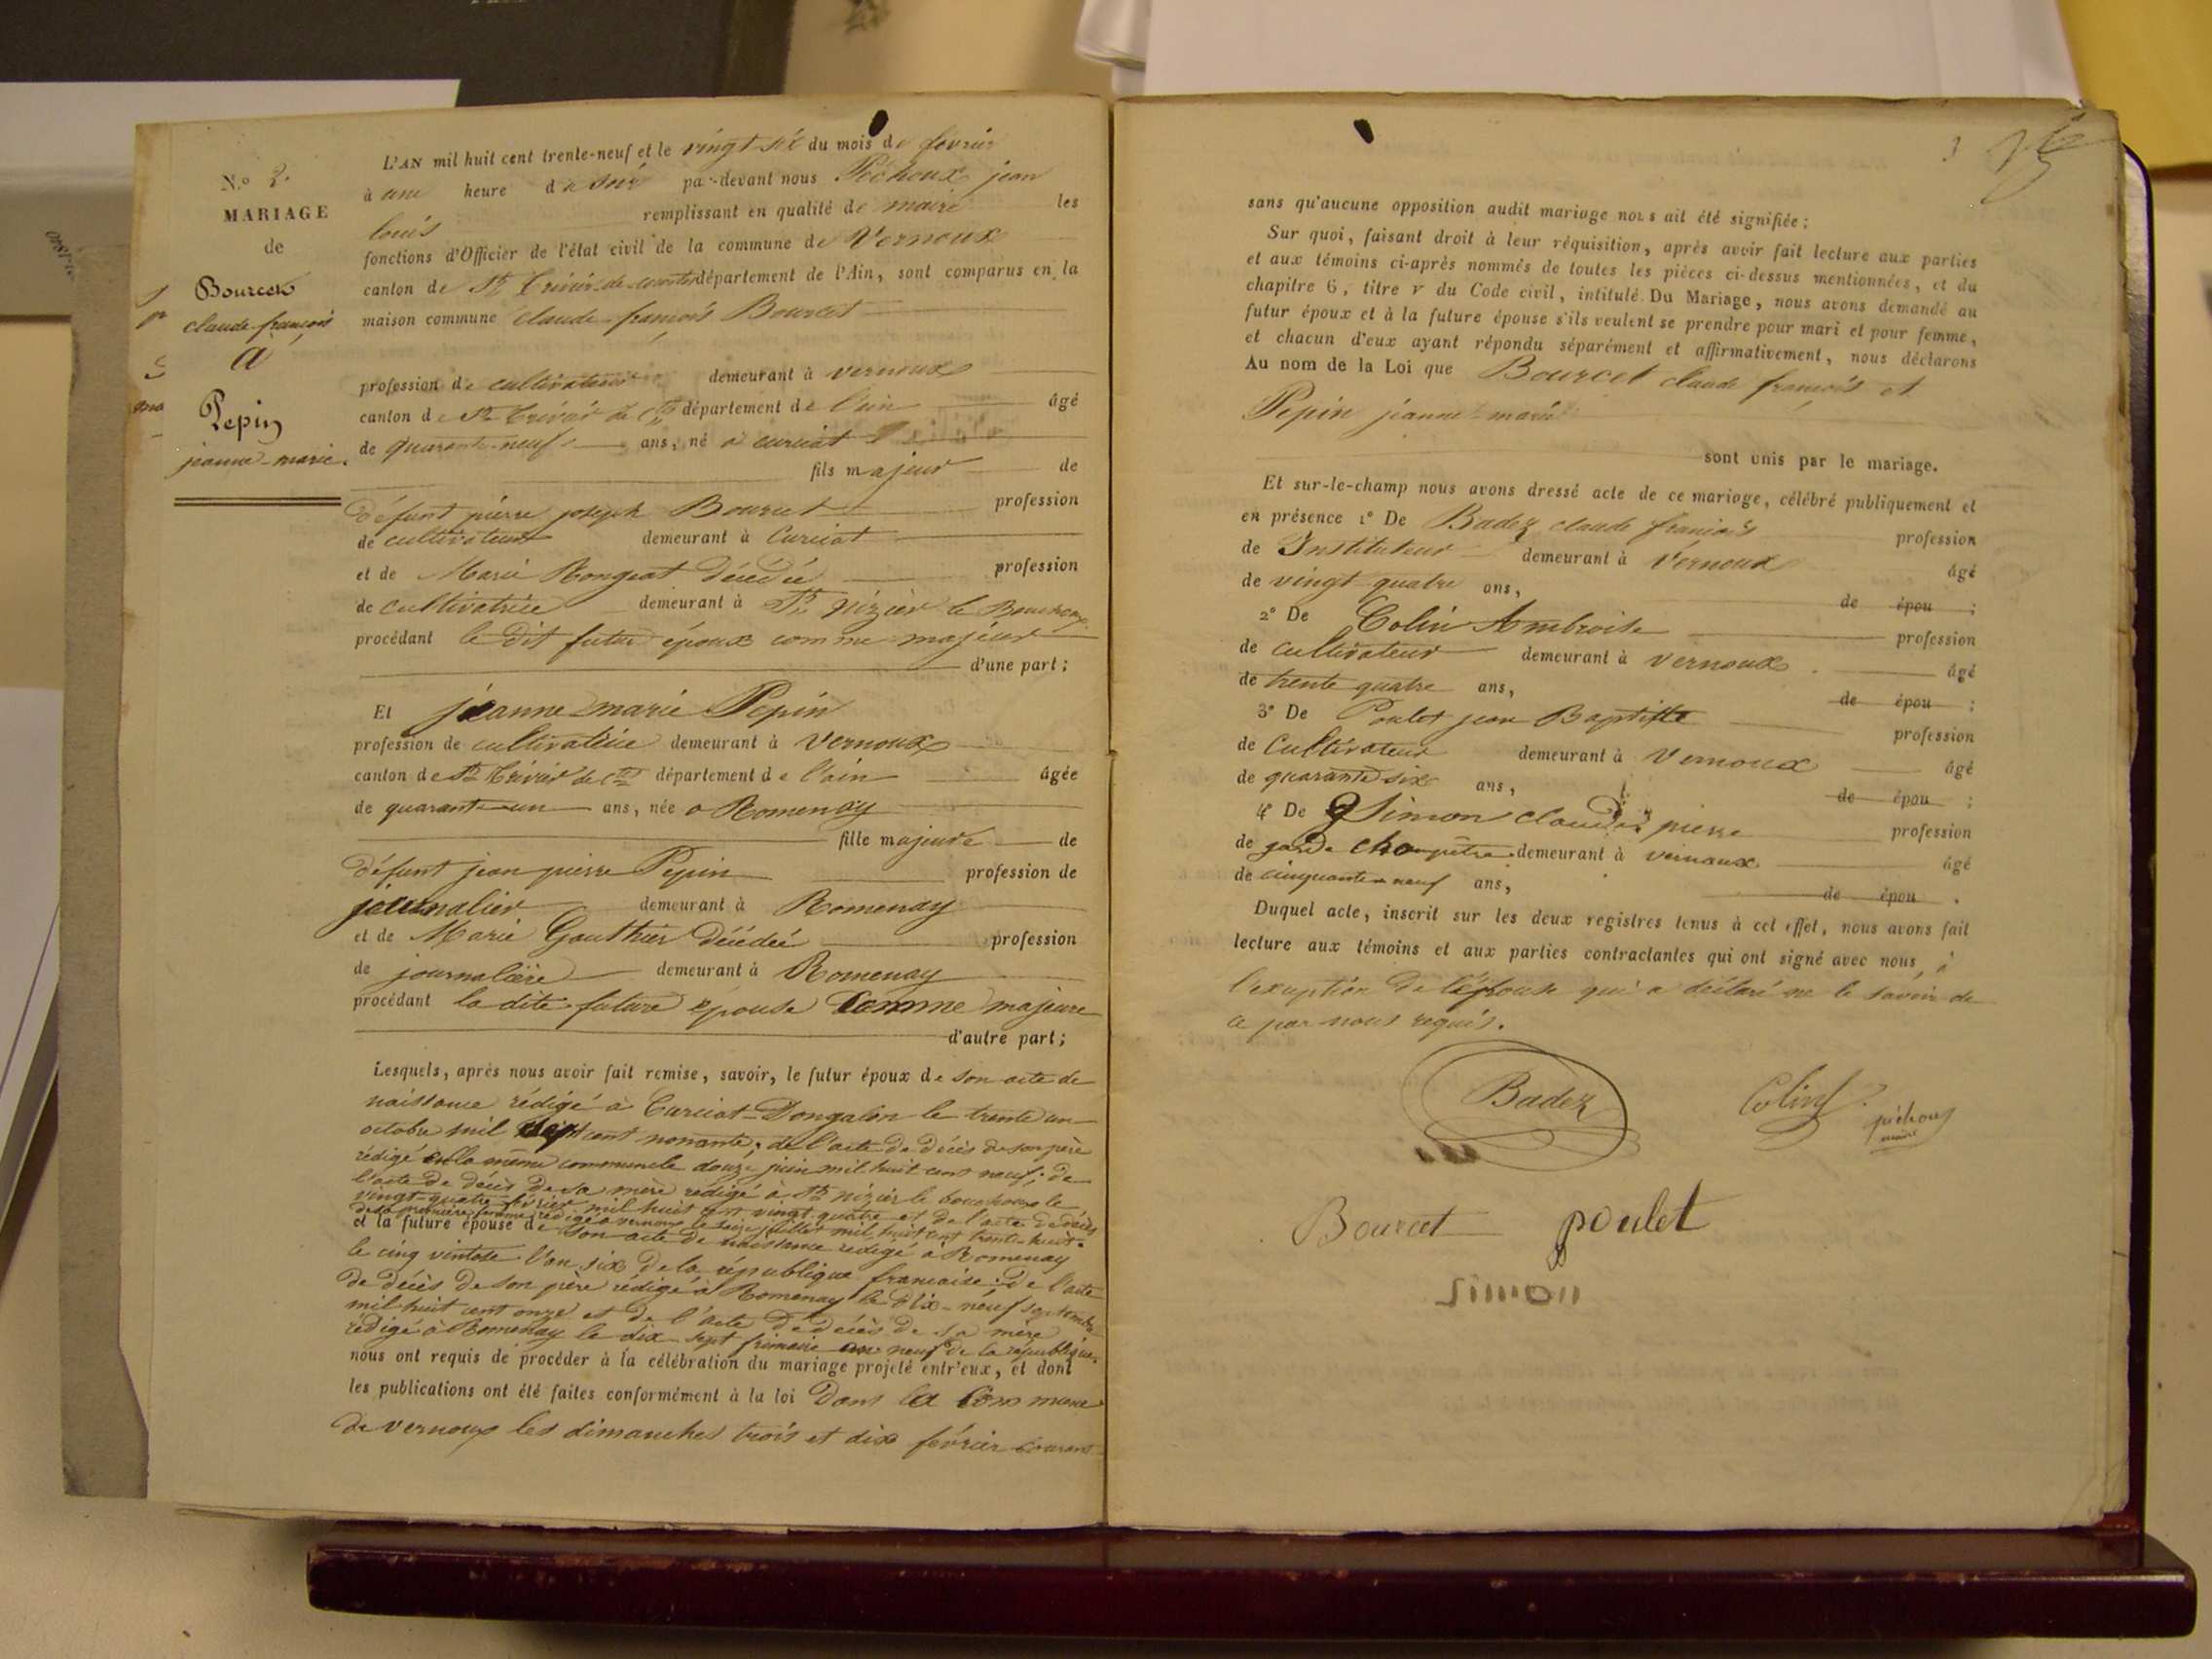 N.o 2.
MARIAGE
de
Bourcet
claude-françois
à
Pepin
jeanne-marie.
L'AN mil huit cent trente-neuf et le vingt six du mois de février
à une heure du soir par-devant nous Péchoux jean
louis remplissant en qualité de maire les
fonctions d'Officier de l'état civil de la commune de Vernoux
canton de St Trivier-de-courtes département de l'Ain, sont comparus en la
maison commune claude-françois Bourcet
profession de cultivateur demeurant à vernoux
canton de St Trivier de Ctes département de l'ain âgé
de quarante-neuf ans, né à curciat
fils majeur de
défunt pierre joseph Bourcet profession
de cultivateur demeurant à Curciat
et de Marie Rongeat décédée profession
de cultivatrice demeurant à St Nizier le Bouchoux
procédant le dit futur époux comme majeur
d'une part ;
Et jeanne-marie Pepin
profession de cultivatrice demeurant à Vernoux
canton de St Trivier de Ctes département de l'ain âgée
de quarante-un ans, née à Romenay
fille majeure de
défunt jean pierre Pepin profession de
journalier demeurant à Romenay
et de Marie Gauthier décédée profession
de journalière demeurant à Romenay
procédant la dite future épouse comme majeure
d'autre part ;
Lesquels, après nous avoir fait remise, savoir, le futur époux de son acte de
naissance rédigé à Curciat-Dongalon le trente un
octobre mil sept cent nonante ; de l'acte de décès de son père
rédigé en la même commune le douze juin mil huit cent neuf ; de
l'acte de décès de sa mère rédigé à St nizier le bouchoux le
vingt-quatre février mil huit cent vingt quatre et de l'acte de décès
de sa première femme rédigé à vernoux le seize juillet mil huit cent trente-huit.
et la future épouse de son acte de naissance rédigé à Romenay
le cinq ventose l'an six de la république francaise : de l'acte
de décès de son père rédigé à Romenay le dix-neuf septembre
mil huit cent onze et de l'acte de décès de sa mère
rédigé à Romenay le dix-sept frimaire an neuf de la république.
nous ont requis de procéder à la célébration du mariage projeté entr'eux, et dont
les publications ont été faites conformément à la loi dans la commune
de vernoux les dimanches trois et dix février courant
3
sans qu'aucune opposition audit mariage nous ait été signifiée ;
Sur quoi, faisant droit à leur réquisition, après avoir fait lecture aux parties
et aux témoins ci-après nommés de toutes les pièces ci-dessus mentionnées, et du
chapitre 6, titre v du Code civil, intitulé Du Mariage, nous avons demandé au
futur époux et à la future épouse s'ils veulent se prendre pour mari et pour femme,
et chacun d'eux ayant répondu séparément et affirmativement, nous déclarons
Au nom de la Loi que Bourcet claude françois et
Pepin jeanne-marie
sont unis par le mariage.
Et sur-le-champ nous avons dressé acte de ce mariage, célébré publiquement et
en présence 1o De Badez claude françois profession
de Instituteur demeurant à Vernoux âgé
de vingt quatre ans, de épou ;
2o De Colin Ambroise profession
de cultivateur demeurant à vernoux âgé
de trente quatre ans, de épou ;
3o De Poulet jean Baptiste profession
de Cultivateur demeurant à Vernoux âgé
de quarante six ans, de épou ;
4o De Simon claude pierre profession
de garde champêtre demeurant à vernoux âgé
de cinquante-neuf ans, de épou .
Duquel acte, inscrit sur les deux registres tenus à cet effet, nous avons fait
lecture aux témoins et aux parties contractantes qui ont signé avec nous, à
l'exception de l'épouse qui a déclaré ne le savoir de
ce par nous requis.
Badez
Colin
péchoux
maire
Bourcet
poulet
Simon